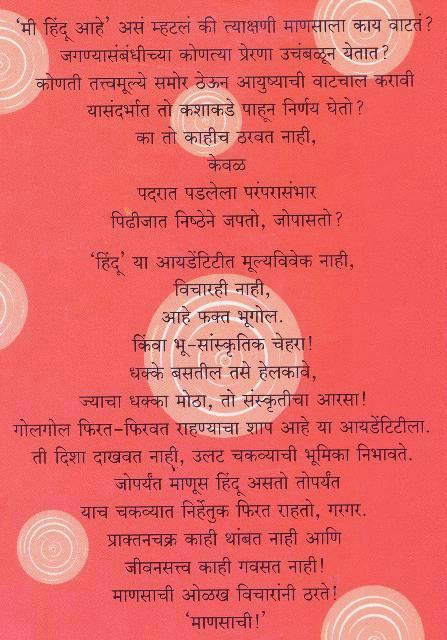 ‘मी हिंदू आहे’ असं म्हटलं की त्याक्षणी माणसाला काय वाटतं?
जगण्यासंबंधीच्या कोणत्या प्रेरणा उचंबळून येतात?
कोणती तत्त्वमूल्ये समोर ठेऊन आयुष्याची वाटचाल करावी
यासंदर्भात तो कशाकडे पाहून निर्णय घेतो?
का तो काहीच ठरवत नाही,
केवळ
पदरात पडलेला परंपरासंभार
पिढीजात निष्ठेने जपतो, जोपासतो?
‘हिंदू’ या आयडेंटिटीत मूल्यविवेक नाही,
विचारही नाही,
आहे फक्त भूगोल.
किंवा भू-सांस्कृतिक चेहरा!
धक्के बसतील तसे हेलकावे,
ज्याचा धक्का मोठा, तो संस्कृतीचा आरसा!
गोलगोल फिरत-फिरवत राहण्याचा शाप आहे या आयडेंटिटीला.
ती दिशा दाखवत नाही, उलट चकव्याची भूमिका निभावते.
जोपर्यंत माणूस हिंदू असतो तोपर्यंत
याच चकव्यात निर्हेतुक फिरत राहतो, गरगर.
प्राक्तनचक्र काही थांबत नाही आणि
जीवनसत्त्व काही गवसत नाही!
माणसाची ओळख विचारांनी ठरते!
‘माणसाची!’